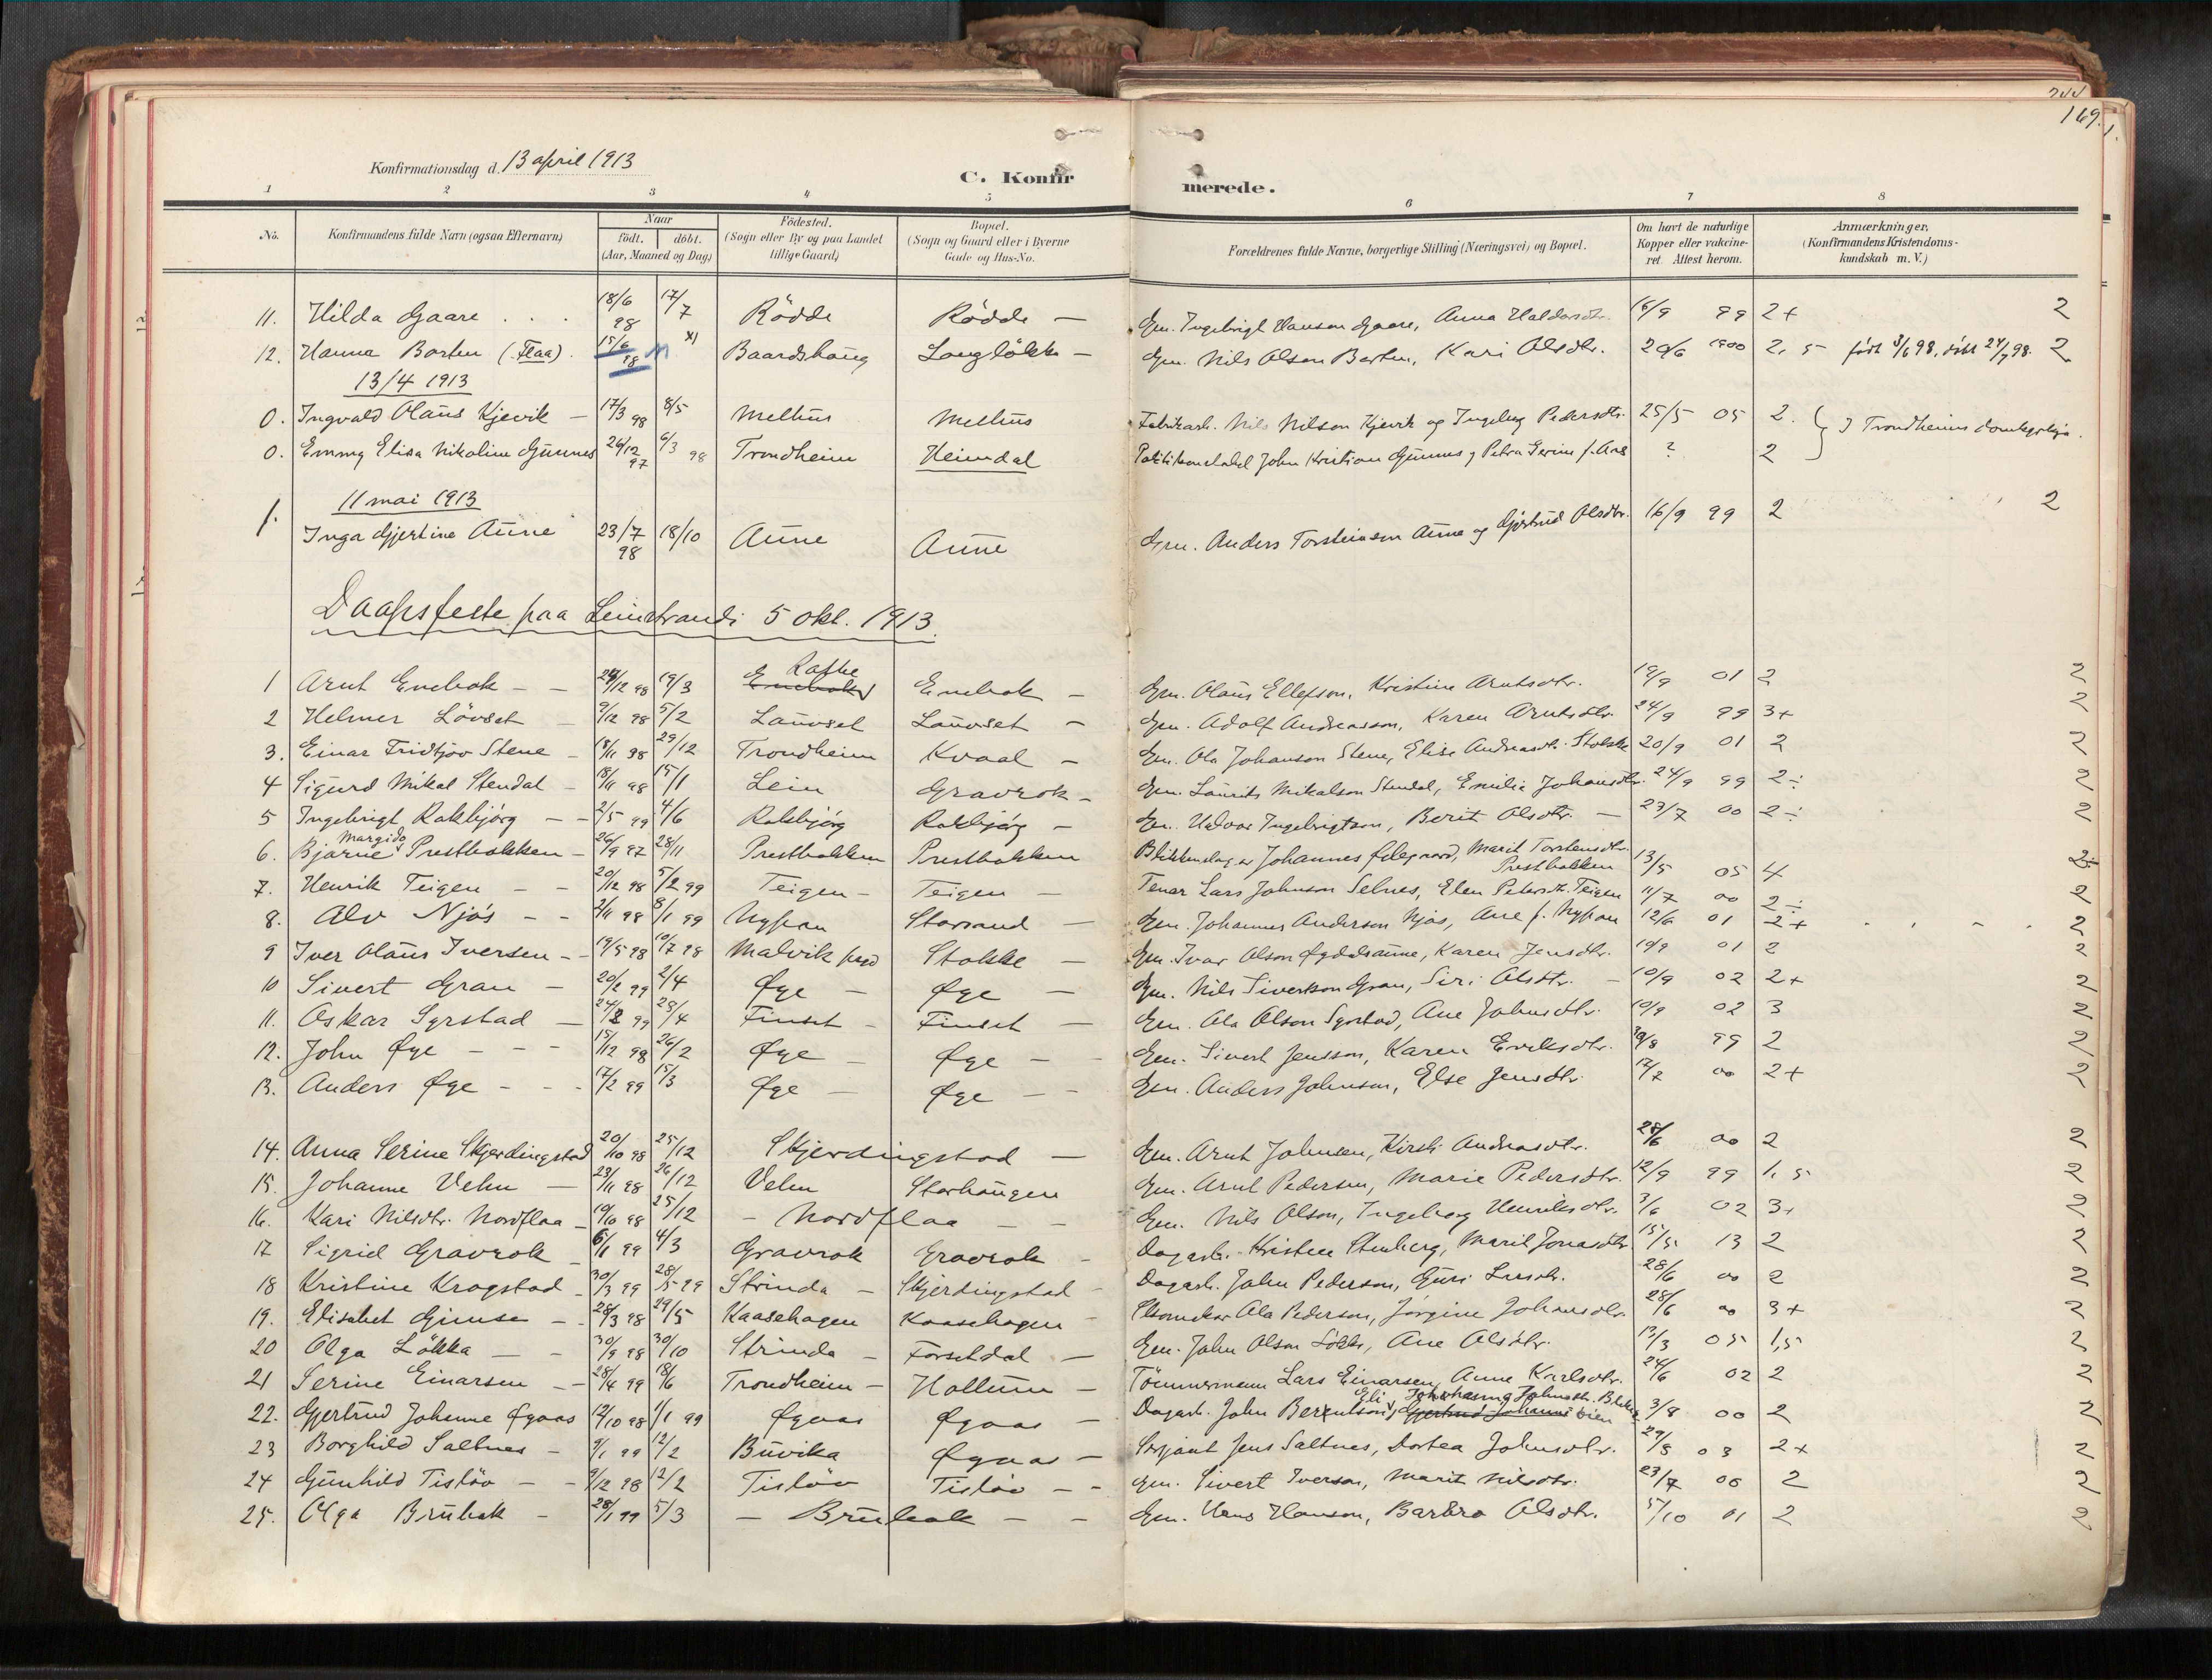 244
169.
Konfirmationsdag d. 13 april 1913
C. Konfir
merede.
1 2 3 4 5 6 7 8
No. Konfirmandens fulde Navn (ogsaa Efternavn) Naar født. døbt. (Aar, Maaned og Dag) Fødested. (Sogn eller By og paa Landet tillige Gaard) Bopæl. (Sogn og Gaard eller i Byerne Gade og Hus-No. Forældrenes fulde Navne, borgerlige Stilling (Næringsvei) og Bopæl. Om havt de naturlige Kopper eller vakcineret. Attest herom. Anmærkninger, (Konfirmandens Kristendomskundskab m. V.)
11. Hilda Gaare . . . 18/6 98 17/7 Rödde Rödde — Gm. Ingebrigt Hanson Gaare, Anna Haldorsdtr. 16/9 99 2+ 2
12. Hanna Borten (Flaa). 15/6 98 x) Baardshaug Langløkk — Gm. Nils Olson Borten, Kari Olsdtr. 29/6 1900 2, 5 født 3/6 98, døbt 24/7 98. 2
13/4 1913
0. Ingvald Olaus Kjevik — 17/3 98 8/5 Melhus Melhus Fabrikarb. Nils Nilson Kjevik og Ingeborg Pedersdtr. 25/5 05 2. } I Trondheims domkyrkja.
0. Emmy Elisa Nikoline Gunnes 26/12 97 6/3 98 Trondheim Heimdal Politikonstabel John Kristian Gunnes og Petra Serine f. Aas ? 2
11 mai 1913
1. Inga Gjertine Aune 23/7 98 18/10 Aune Aune Gm. Anders Torsteinson Aune og Gjertrud Olsdtr. 16/9 99 2 2
Daapsfeste paa Leinstrandi 5 okt. 1913.
1 Arnt Enebak — — 29/12 98 19/3 Rathe Enebak Enebak — Gm. Olaus Ellefson, Kristine Arntsdtr. 19/9 01 2 2
2 Helmer Lövset — 9/12 98 5/2 Lauvset Lauvset — Gm. Adolf Andreasson, Karen Arntsdtr. 24/9 99 3+ 2
3. Einar Fridtjov Stene — 18/11 98 29/12 Trondheim Kvaal — Gm. Ola Johanson Stene, Elise Andreasdtr. Stokke 20/9 01 2 2
4 Sigurd Mikal Stendal — 18/11 98 15/1 Lein Gravrok — Gm. Laurits Mikalson Stendal, Emilie Johansdtr. 24/9 99 2÷ 2
5 Ingebrigt Rakbjörg — — 2/5 99 4/6 Rakbjörg Rakbjörg — Gm. Halvor Ingebrigtson, Berit Olsdtr. — 23/7 00 2÷ 2
6. Bjarne Margido Prestbakken — 26/9 97 28/11 Prestbakken Prestbakken Blikkenslager Johannes Ødegaard, Marit Torstensdtr. Prestbakken 13/5 05 4 2÷
7. Henrik Teigen — — 20/12 98 5/2 99 Teigen — Teigen — Tenar Lars Johnson Selnes, Elen Petersdtr. Teigen 11/7 00 2÷ 2
8. Alv Njös — — 2/11 98 8/1 99 Nypan Storrand — Gm. Johannes Anderson Njös, Ane f. Nypan 12/6 01 2+ 2
9 Iver Olaus Iversen — — 19/5 98 10/7 98 Malvik pgd Stokke — Gm. Ivar Olson Øydalsaune, Karen Jensdtr. 19/9 01 2 2
10 Sivert Gran — 20/2 99 2/4 Øye — Øye — Gm. Nils Sivertson Gran, Siri Olsdtr. — 10/9 02 2+ 2
11. Oskar Syrstad — 24/2 99 23/4 Finset — Finset — Gm. Ola Olson Syrstad, Ane Johnsdtr. 10/9 02 3 2
12. John Øye — — — 15/12 98 26/2 Øye — Øye — — Gm. Sivert Jensson, Karen Eriksdtr. 30/8 99 2 2
13. Anders Øye — — — 17/2 99 15/3 Øye — Øye — — Gm. Anders Johnson, Else Jensdtr. 12/7 00 2+ 2
14. Anna Serine Skjerdingstad 20/10 98 25/12 Skjerdingstad — Gm. Arnt Johnsen, Kirsti Andreasdtr. 28/6 00 2 2
15. Johanne Velin — 23/11 98 26/12 Velin Storhaugen Gm. Arnt Pedersen, Marie Pedersdtr. 12/9 99 1,5 2
16. Kari Nilsdtr. Nordflaa — 19/10 98 25/12 — Nordflaa — — Gm. Nils Olson, Ingeborg Henriksdtr. 3/6 02 3+ 2
17 Sigrid Gravrok — 6/1 99 4/3 Gravrok Gravrok — Dagarb. Kristen Stenberg, Marit Jonasdtr. 15/5 13 2 2
18 Kristine Krogstad — 30/3 99 28/5 99 Strinda — Skjerdingstad — Dagarb. John Pederson, Guri Larsdtr. 28/6 00 2 2
19. Elisabet Gimse — — 28/3 98 29/5 Kaasehagen Kaasehagen — Skomaker Ola Pederson, Jörgine Johansdtr. 28/6 00 3+ 2
20 Olga Løkka — — 30/9 98 30/10 Strinda — Forsetdal — Gm. John Olson Løkke, Ane Olsdtr. 13/3 05 1,5 2
21 Serine Einarsen — — 28/4 99 18/6 Trondheim — Hollum — Tömmermann Lars Einarsen, Anne Karlsdtr. 24/6 02 2 2
22. Gjertrud Johanne Øgaas 12/10 98 1/1 99 Øgaas Øgaas — Dagarb. John Berentson, Eli Gjertrud Johanne 3/8 00 2 2
23 Borghild Saltnes — 9/1 99 12/2 Buvika Øgaas — Serjant Jens Saltnes, Dortea Johnsdtr. 29/8 03 2+ 2
24 Gunhild Tislöv — — 9/12 98 12/2 Tislöv Tislöv — — Gm. Sivert Iverson, Marit Nilsdtr. 23/7 06 2 2
25. Olga Brubak — 28/1 99 5/3 — Brubak — — Gm. Hans Hanson, Barbro Olsdtr. 5/10 01 2 2